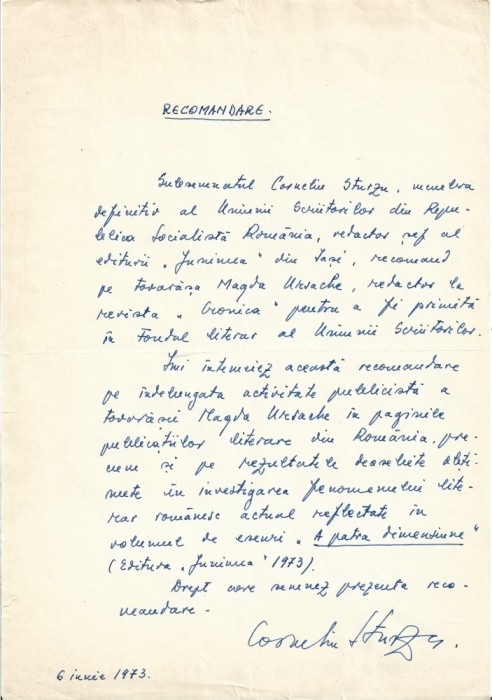 RECOMANDARE.
Subsemnatul Corneliu Sturzu, membru
definitiv al Uniunii Scriitorilor din Repu-
blica Socialistă România, redactor șef al
editurii „Junimea" din Iași, recomand
pe tovarășa Magda Ursache, redactor la
revista „Cronica" pentru a fi primită
în Fondul literar al Uniunii Scriitorilor.
Îmi întemeiez această recomandare
pe îndelungata activitate publicistă a
tovarășii Magda Ursache în paginile
publicațiilor literare din România, pre-
cum și pe rezultatele deosebite obți-
nute în investigarea fenomenului lite-
rar românesc actual reflectate in
volumul de eseuri „A patra dimensiune"
(Editura „Junimea" 1973).
Drept care semnez prezenta reco-
mandare -
Corneliu Sturzu.
6 iunie 1973.